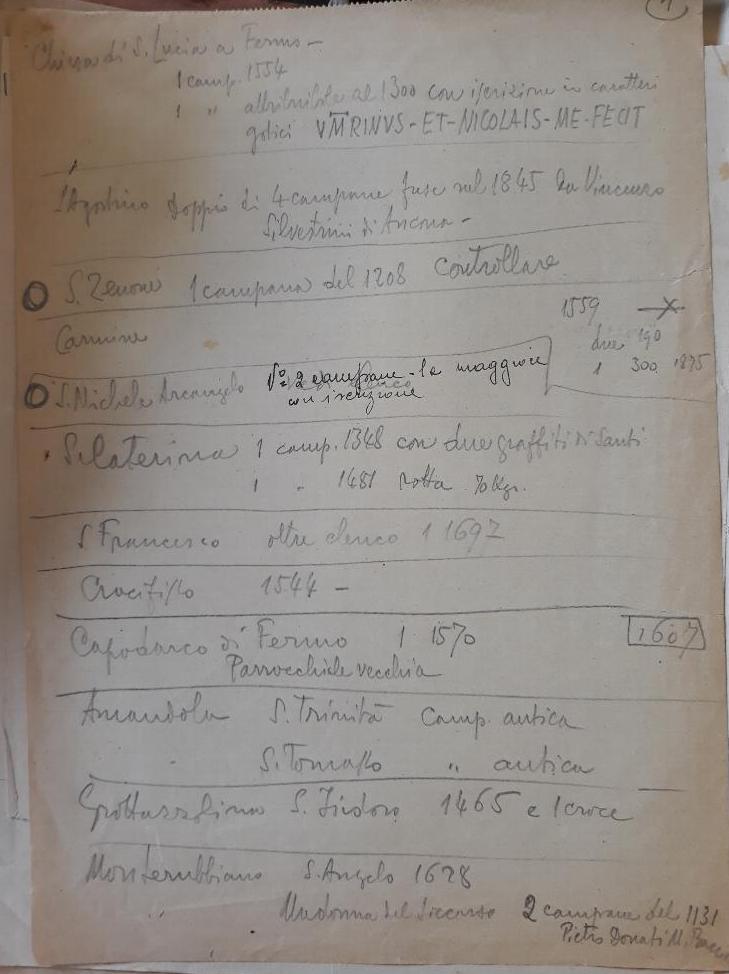 1
Chiesa di S. Lucia a Fermo -
1 camp. 1554
1 " attribuibile al 1300 con iscrizione in caratteri
gotici VMRINVS-ET-NICOLAIS-ME-FECIT
S. Agostino doppio di 4 campane fuse nel 1845 da Vincenzo
Silvestrini di Ancona -
S. Zenone 1 campana del 1208 Controllare
Carmine 1559
due 190
1 300 1895
S. Michele Arcangelo N° 2 campane - la maggiore
con iscrizione
S. Caterina 1 camp. 1348 con due graffiti di Santi
1 " 1481 rotta 70 Kgr.
S. Francesco oltre elenco 1 1697
Crocifisso 1544 -
Capodarco di Fermo 1 1570 1607
Parrocchiale vecchia
Amandola S. Trinità Camp. antica
S. Tomasso " antica
Grottazzolina S. Isidoro 1465 e 1 croce
Monterubbiano S. Angelo 1628
" Madonna del Soccorso 2 campane del 1131
Pietro Donati M.